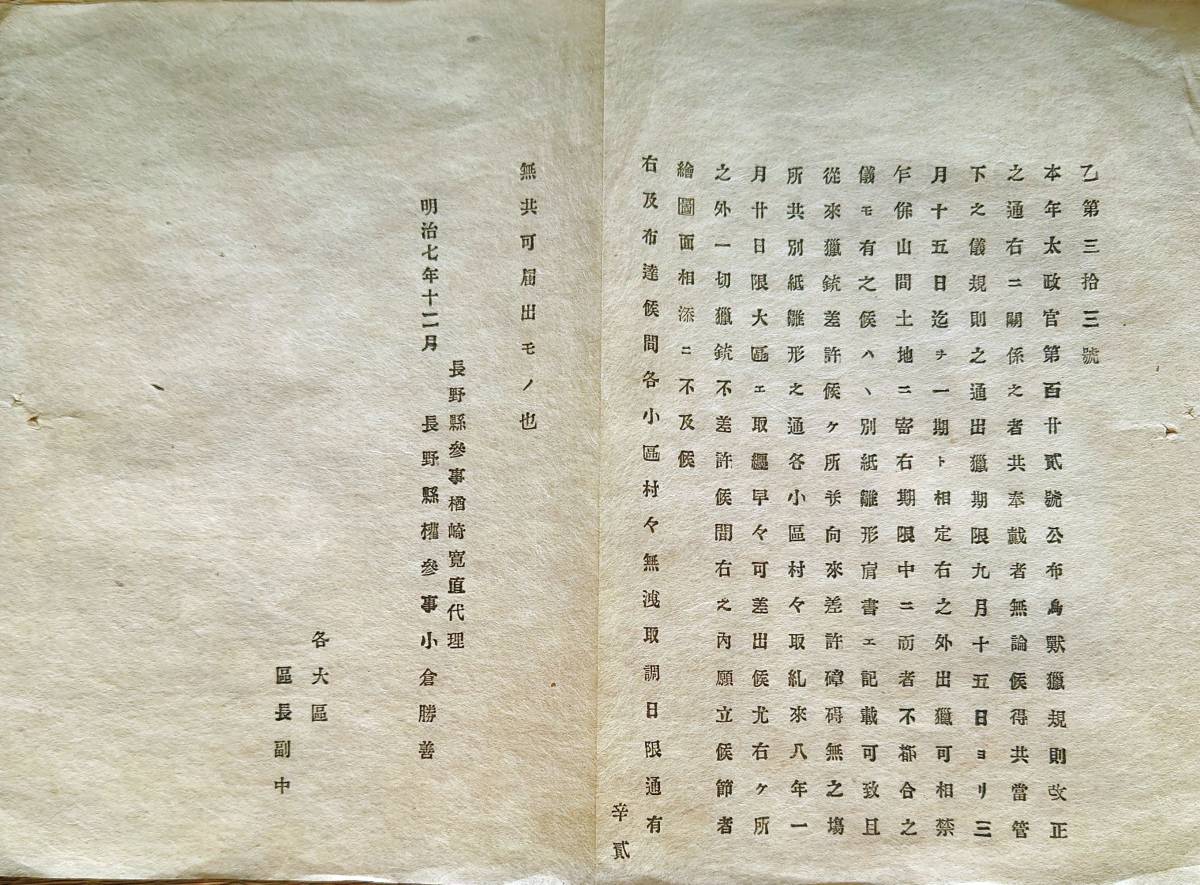 乙第三拾三號
本年太政官第百廿貳號公布鳥獸獵規則改正
之通右ニ關係之者共奉戴者無論候得共當管
下之儀規則之通出獵期限九月十五日ヨリ三
月十五日迄ヲ一期ト相定右之外出獵可相禁
乍併山間土地ニ寄右期限中ニ而者不都合之
儀モ有之候ハヽ別紙雛形肩書エ記載可致且
從來獵銃差許候ヶ所並向來差許障碍無之塲
所共別紙雛形之通各小區村々取糺來八年一
月廿日限大區エ取纒早々可差出候尤右ヶ所
之外一切獵銃不差許候間右之內願立候節者
繪圖面相添ニ不及候
右及布達候間各小區村々無洩取調日限通有
辛貳
無共可屆出モノ也
長野縣參事楢崎寬直代理
明治七年十二月 長野縣權參事小倉勝善
各大區
區長副中